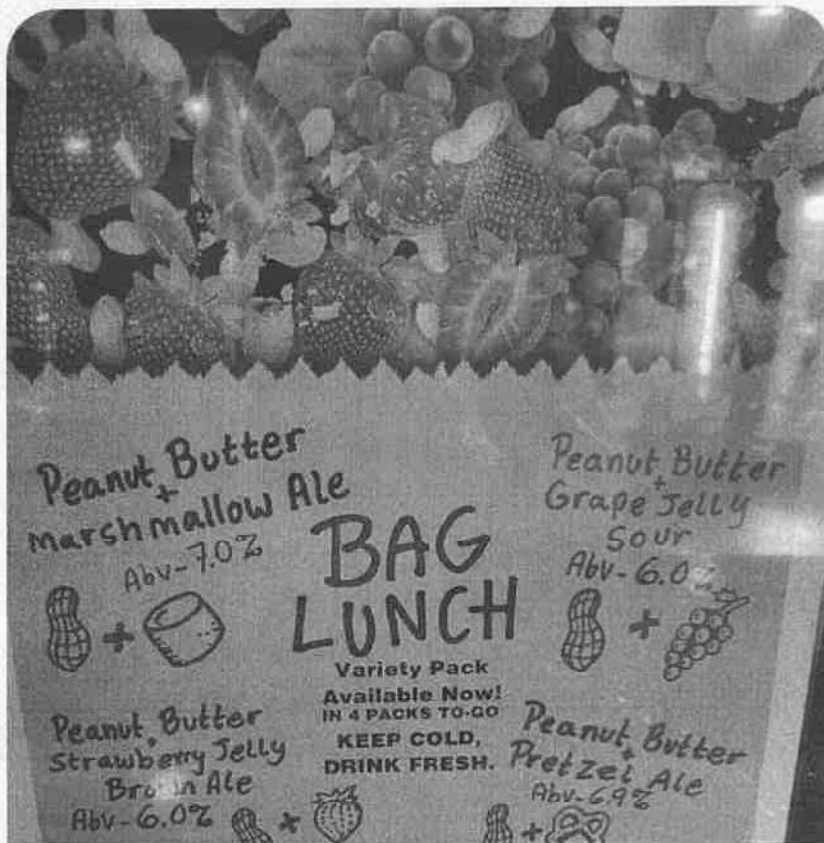 Peanut Butter
+
Marshmallow Ale
Abv-7.0%
+
Peanut Butter
+
Grape Jelly
Sour
Abv-6.0%
+
BAG
LUNCH
Variety Pack
Available Now!
IN 4 PACKS TO-GO
KEEP COLD,
DRINK FRESH.
Peanut Butter
+
Strawberry Jelly
Brown Ale
Abv-6.0%
+
Peanut Butter
+
Pretzel Ale
Abv-6.9%
+